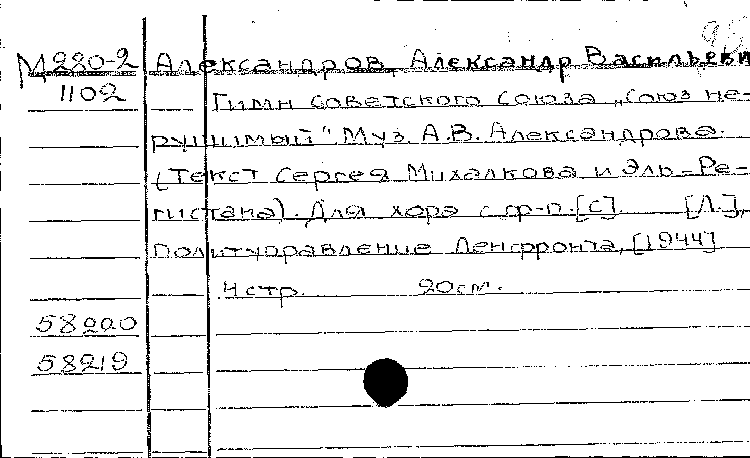 95
М220-2 Александров, Александр Васильеви
1102 Гимн Советского Союза „Союз не-
рушимый". Муз. А.В. Александрова.
(Текст Сергея Михалкова и Эль-Ре-
гистана). Для хора с ф-п. [С] [Л.],
Политуправление Ленфронта, [1944]
4 стр. 20 см.
58220
58219